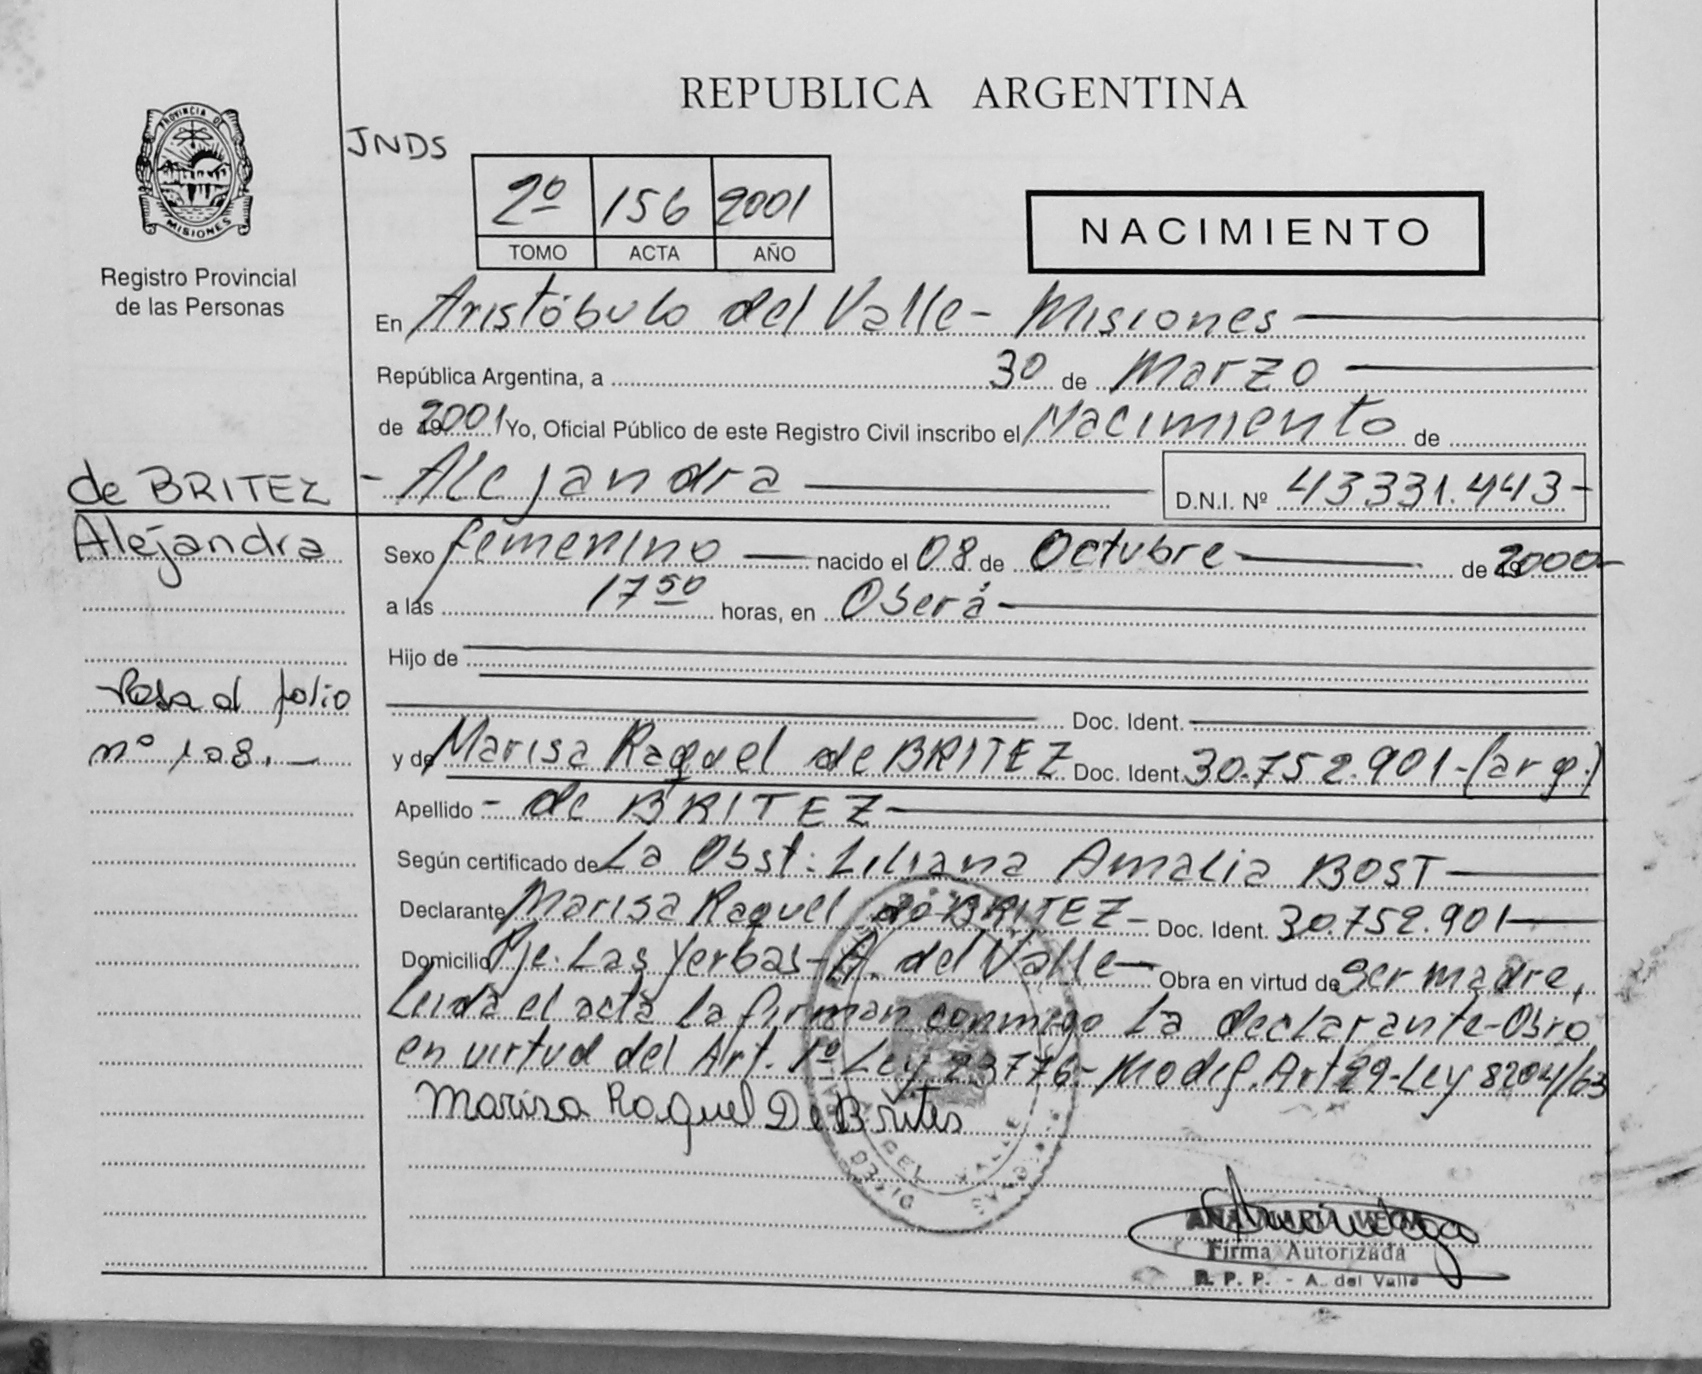 REPUBLICA ARGENTINA
PROVINCIA DE
MISIONES
Registro Provincial
de las Personas
JNDS
2º 156 2001
TOMO ACTA AÑO
NACIMIENTO
En Aristóbulo del Valle - Misiones
República Argentina, a 30 de Marzo
de 2001 Yo, Oficial Público de este Registro Civil inscribo el Nacimiento de
de BRITEZ - Alejandra D.N.I. Nº 43331.443-
Alejandra
Sexo femenino nacido el 08 de Octubre de 2000-
a las 17 50 horas, en Oberá
Hijo de
Doc. Ident.
Pasa al folio
nº 108.-
y de Marisa Raquel de BRITEZ Doc. Ident. 30.752.901-(arg.)
Apellido - de BRITEZ
Según certificado de La Obst: Liliana Amalia BOST
Declarante Marisa Raquel de BRITEZ- Doc. Ident. 30.752.901
Domicilio Pje. Las Yerbas-A. del Valle Obra en virtud de ser madre,
Leída el acta la firman conmigo la declarante-Obro
en virtud del Art. 1º Ley 23776- Modif. Art 29-Ley 8204/63
Marisa Raquel De Brites
DEL VALLE
ANA MARIA VEGA
Firma Autorizada
R. P. P. - A. del Valle